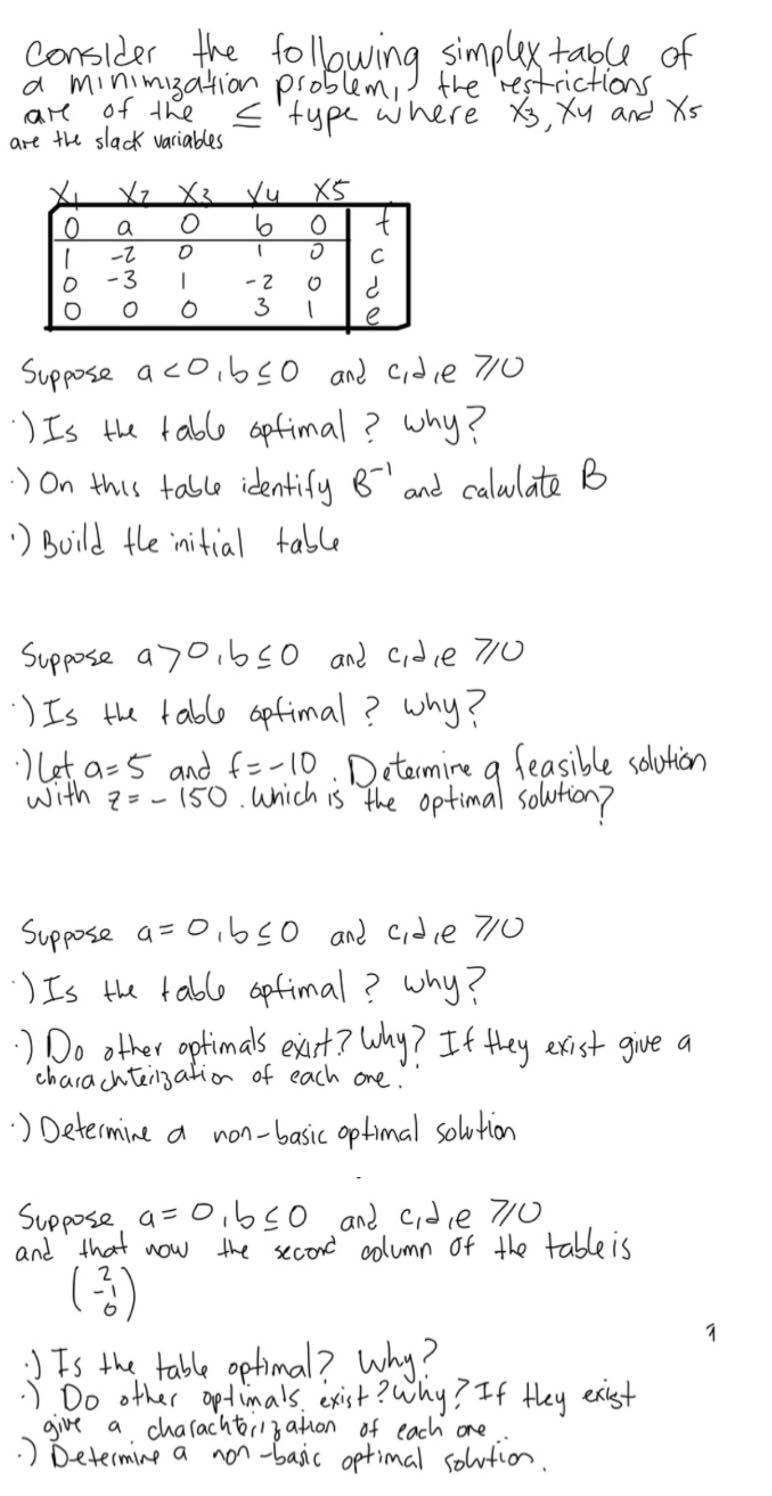 Consider the following simplex table of
a minimization problem, the restrictions
are of the ≤ type where X3, X4 and X5
are the slack variables
X1 X2 X3 X4 X5
0 a 0 b 0 f
1 -2 0 1 0 c
0 -3 1 -2 0 d
0 0 0 3 1 e
Suppose a<0, b≤0 and c,d,e ≥0
·) Is the table optimal? Why?
·) On this table identify B⁻¹ and calculate B
·) Build the initial table
Suppose a>0, b≤0 and c,d,e ≥0
·) Is the table optimal? Why?
·) Let a=5 and f=-10. Determine a feasible solution
with z=-150. Which is the optimal solution?
Suppose a=0, b≤0 and c,d,e ≥0
·) Is the table optimal? Why?
·) Do other optimals exist? Why? If they exist give a
charachterization of each one.
·) Determine a non-basic optimal solution
Suppose a=0, b≤0 and c,d,e ≥0
and that now the second column of the table is
(2
-1
0)
·) Is the table optimal? Why?
·) Do other optimals exist? Why? If they exist
give a charachterization of each one..
·) Determine a non-basic optimal solution.